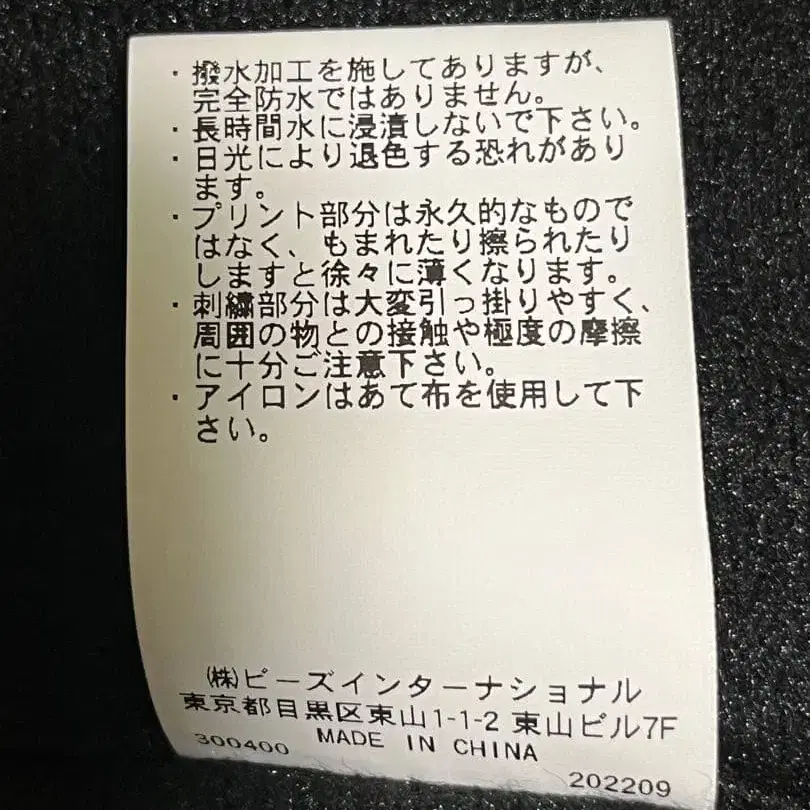 ・撥水加工を施してありますが、
完全防水ではありません。
・長時間水に浸漬しないで下さい。
・日光により退色する恐れがあり
ます。
・プリント部分は永久的なもので
はなく、もまれたり擦られたり
しますと徐々に薄くなります。
・刺繍部分は大変引っ掛りやすく、
周囲の物との接触や極度の摩擦
に十分ご注意下さい。
・アイロンはあて布を使用して下
さい。
㈱ビーズインターナショナル
東京都目黒区東山1-1-2 東山ビル7F
300400 MADE IN CHINA
202209